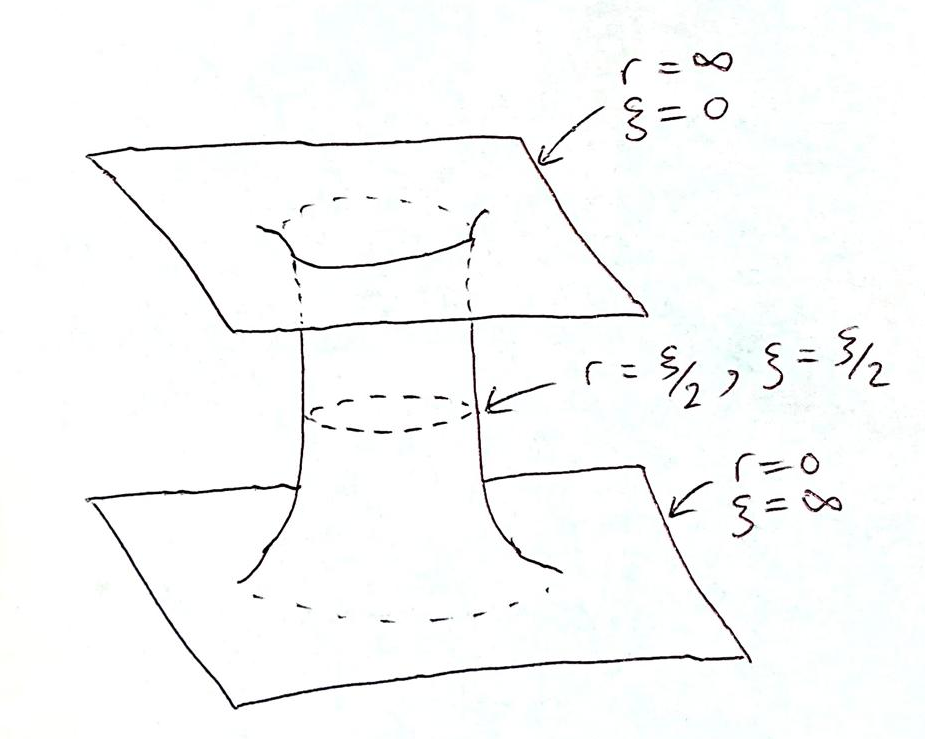 r = ∞
ξ = 0
r = ξ/2 , ξ = ξ/2
r = 0
ξ = ∞